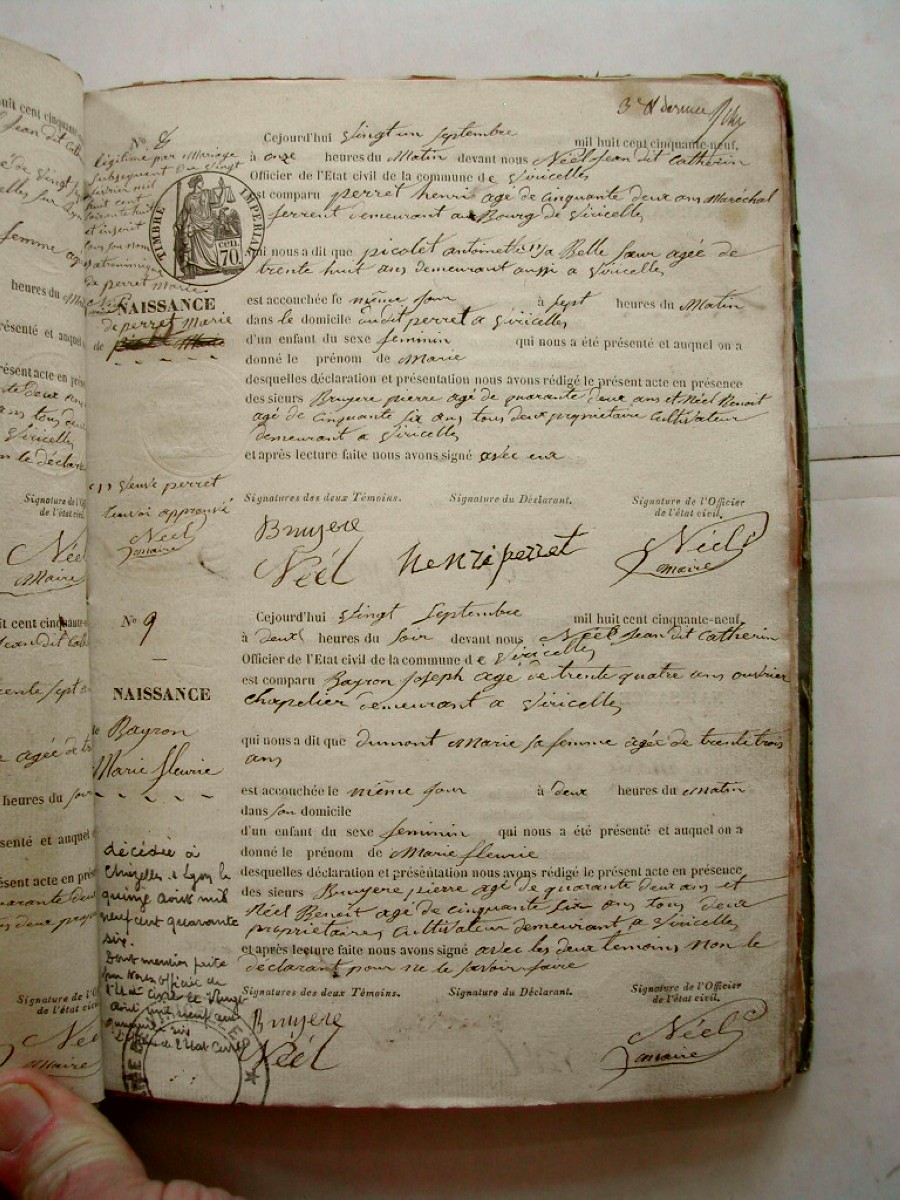 3e & dernier
No 8
légitimé par Mariage
subsequent du vingt
janvier mil
huit cent
soixante huit
et inscrit
sous son nom
patronimique
de perret Marie
TIMBRE IMPERIAL
70
NAISSANCE
de perret Marie
Cejourd'hui vingt un septembre mil huit cent cinquante-neuf,
à onze heures du Matin devant nous Néel Jean dit Catherin
Officier de l'Etat civil de la commune de Viricelles
est comparu perret henri agé de cinquante deux ans Maréchal
ferrent demeurant au Bourg de Viricelles
qui nous a dit que picolet antoinette (1) sa Belle sœur agée de
trente huit ans demeurant aussi a Viricelles
est accouchée le même jour à sept heures du Matin
dans le domicile dudit perret a Viricelles
d'un enfant du sexe feminin qui nous a été présenté et auquel on a
donné le prénom de Marie
desquelles déclaration et présentation nous avons rédigé le présent acte en présence
des sieurs Bruyere pierre agé de quarante deux ans et Néel Benoit
agé de cinquante six ans tous deux propriétaire Cultivateur
demeurant a Viricelles
et après lecture faite nous avons signé avec eux
(1) veuve perret
renvoi approuvé
Néel
maire
Signatures des deux Témoins. Signature du Déclarant. Signature de l'Officier
de l'état civil.
Bruyere
Néel henri perret Néel
maire
No 9
NAISSANCE
de Bayron
Marie fleurie
Cejourd'hui vingt septembre mil huit cent cinquante-neuf,
à deux heures du soir devant nous Néel Jean dit Catherin
Officier de l'Etat civil de la commune de Viricelles
est comparu Bayron Joseph agé de trente quatre ans ouvrier
chapelier demeurant a Viricelles
qui nous a dit que dumont Marie sa femme agée de trente trois
ans
est accouchée le même jour à deux heures du Matin
dans son domicile
d'un enfant du sexe feminin qui nous a été présenté et auquel on a
donné le prénom de Marie fleurie
desquelles déclaration et présentation nous avons rédigé le présent acte en présence
des sieurs Bruyere pierre agé de quarante deux ans et
Néel Benoit agé de cinquante six ans tous deux
propriétaires Cultivateur demeurant a Viricelles
et après lecture faite nous avons signé avec les deux temoins Non le
déclarant pour ne le savoir faire
décédée à
Chazelles s Lyon le
quinze août mil
neuf cent quarante
six.
Dont mention faite
par Nous officier de
l'Etat Civil le
août mil neuf cent
quarante six
L'officier de l'Etat Civil
Signatures des deux Témoins. Signature du Déclarant. Signature de l'Officier
de l'état civil.
Bruyere
Néel Néel
maire